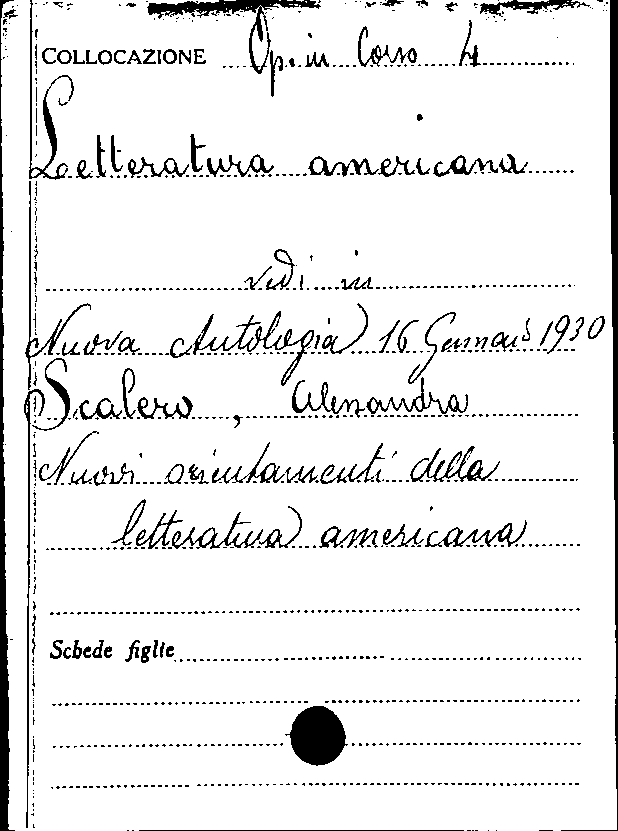 COLLOCAZIONE Op. in Corso 4
Letteratura americana
vedi in
Nuova Antologia 16 Gennaio 1930
Scalero, Alessandra
Nuovi orientamenti della
letteratura americana
Schede figlie